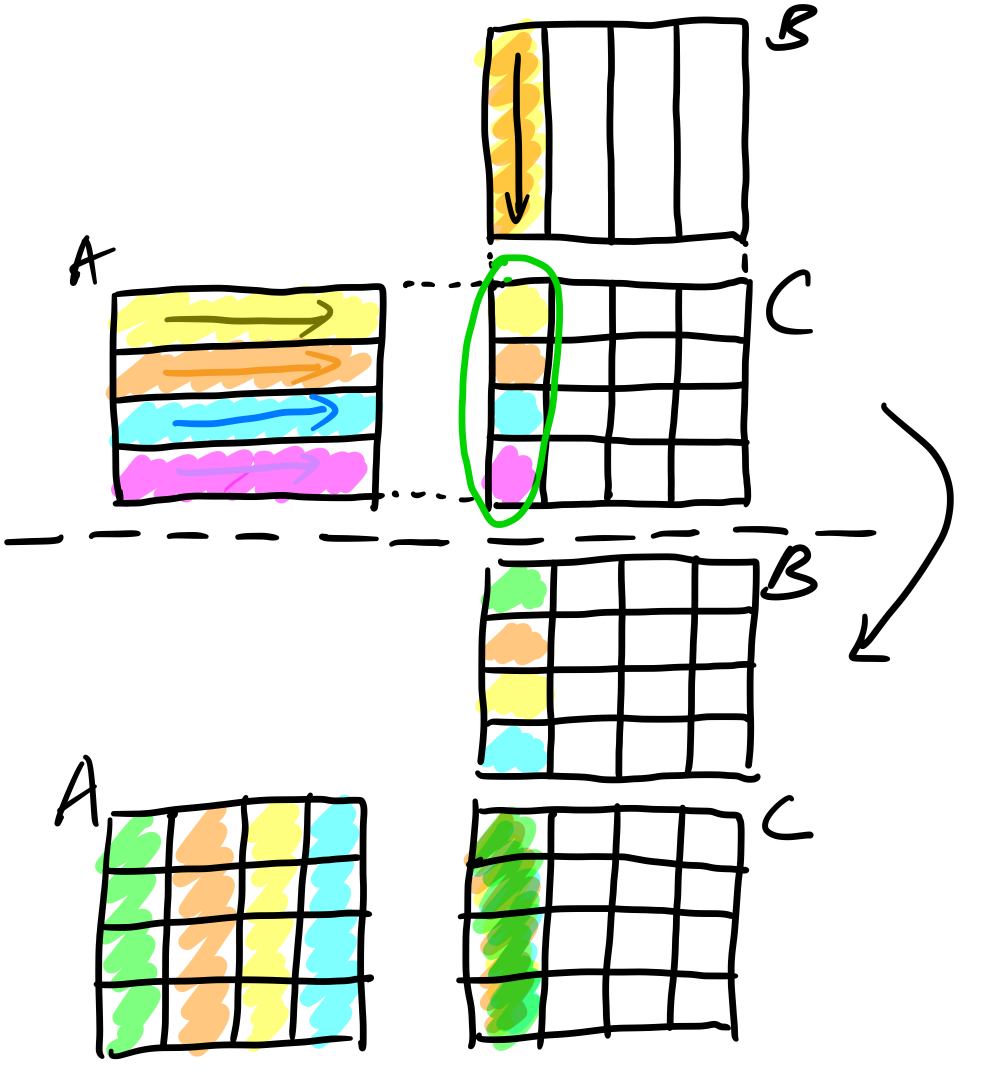 B
A
C
B
A
C